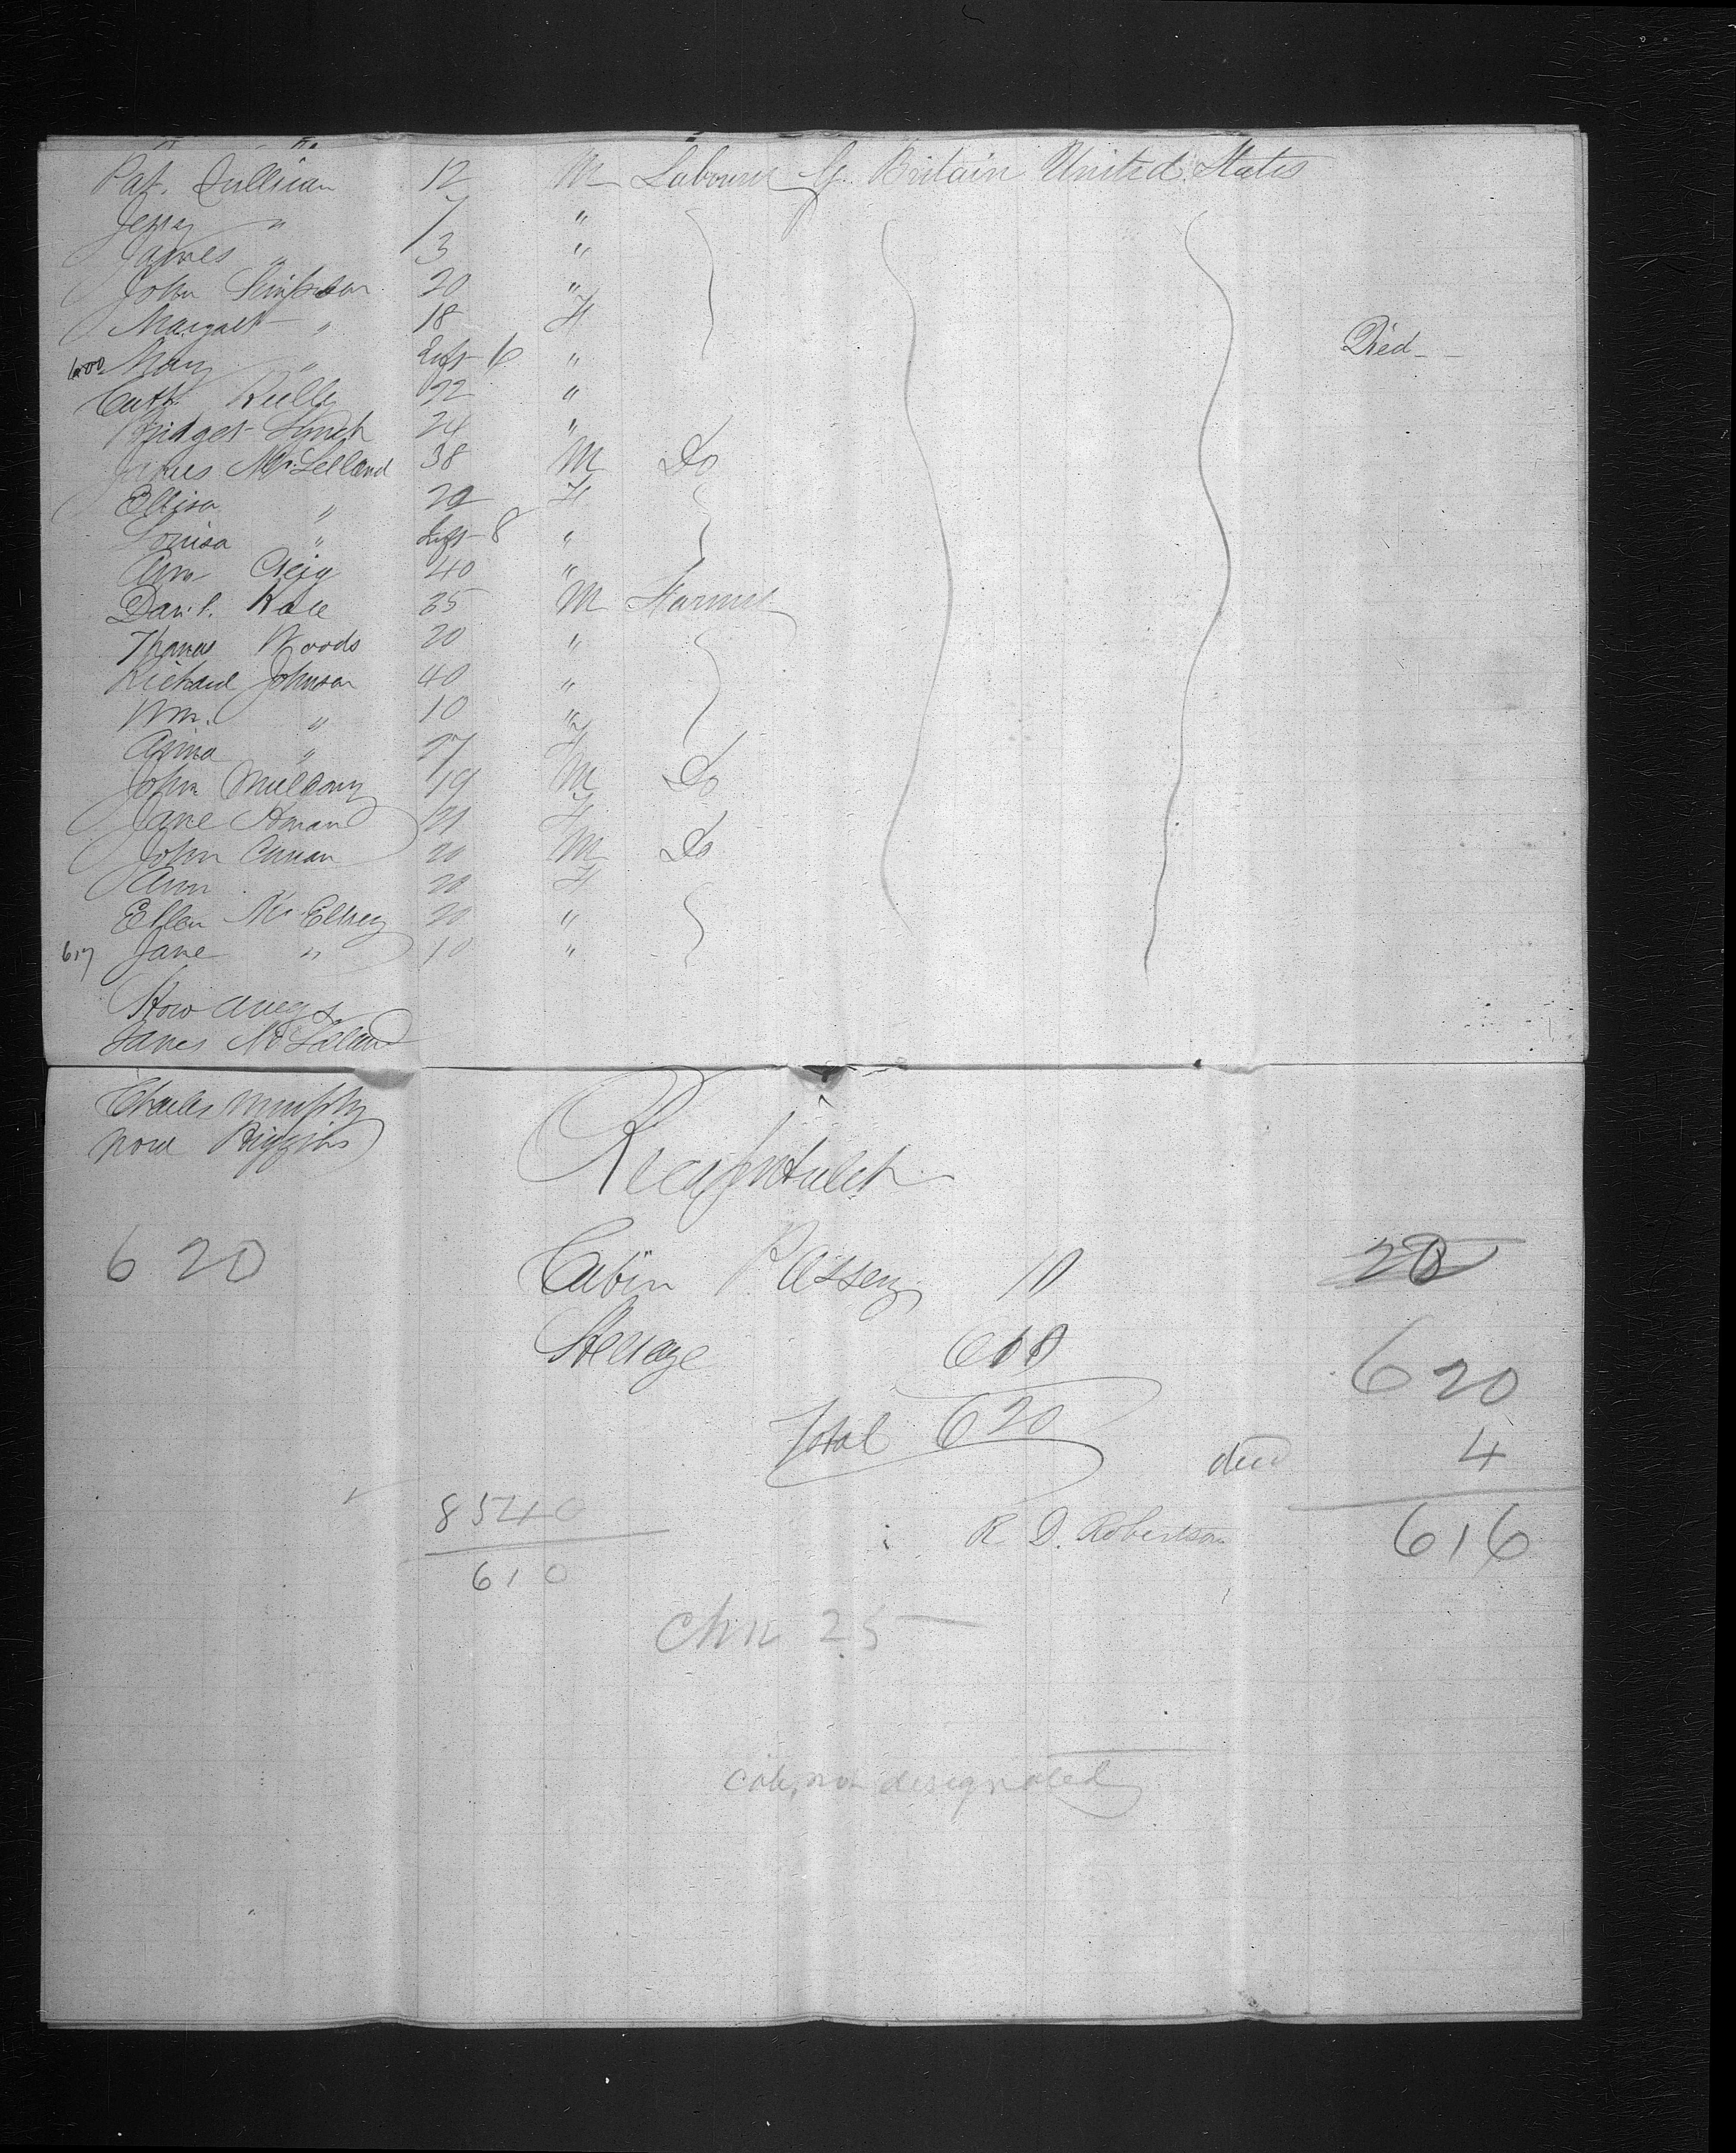 Pat. Sullivan 12 M Labourer G. Britain United States
Jerry " 7 "
James " 3 "
John Simpson 20 "
Margaet " 18 F
600 Mary " Inft 6 " Died
Cath Kelly 22 "
Bridget Lynch 24 "
James McLelland 38 M Do
Ellisa " 29 F
Louisa " Inft 8 "
Ann 40 "
Danl. 35 M Farmer
Thomas Woods 20 "
Richard Johnson 40 "
Wm. " 10 "
Anna " 27 F
John 19 M Do
Jane 21 F
John Curran 20 M Do
Ann 20 F
Ellen McElhey 20 "
617 Jane " 10 "
Stow aways
James McLelland
Charles Murphy
Nora Higgins
Recapitulat
Cabin Passeng 10
620
20
Steerage 610
620
Total 620
died 4
85 40
R. D. Robertson
616
610
Chn 25
cabin not designated